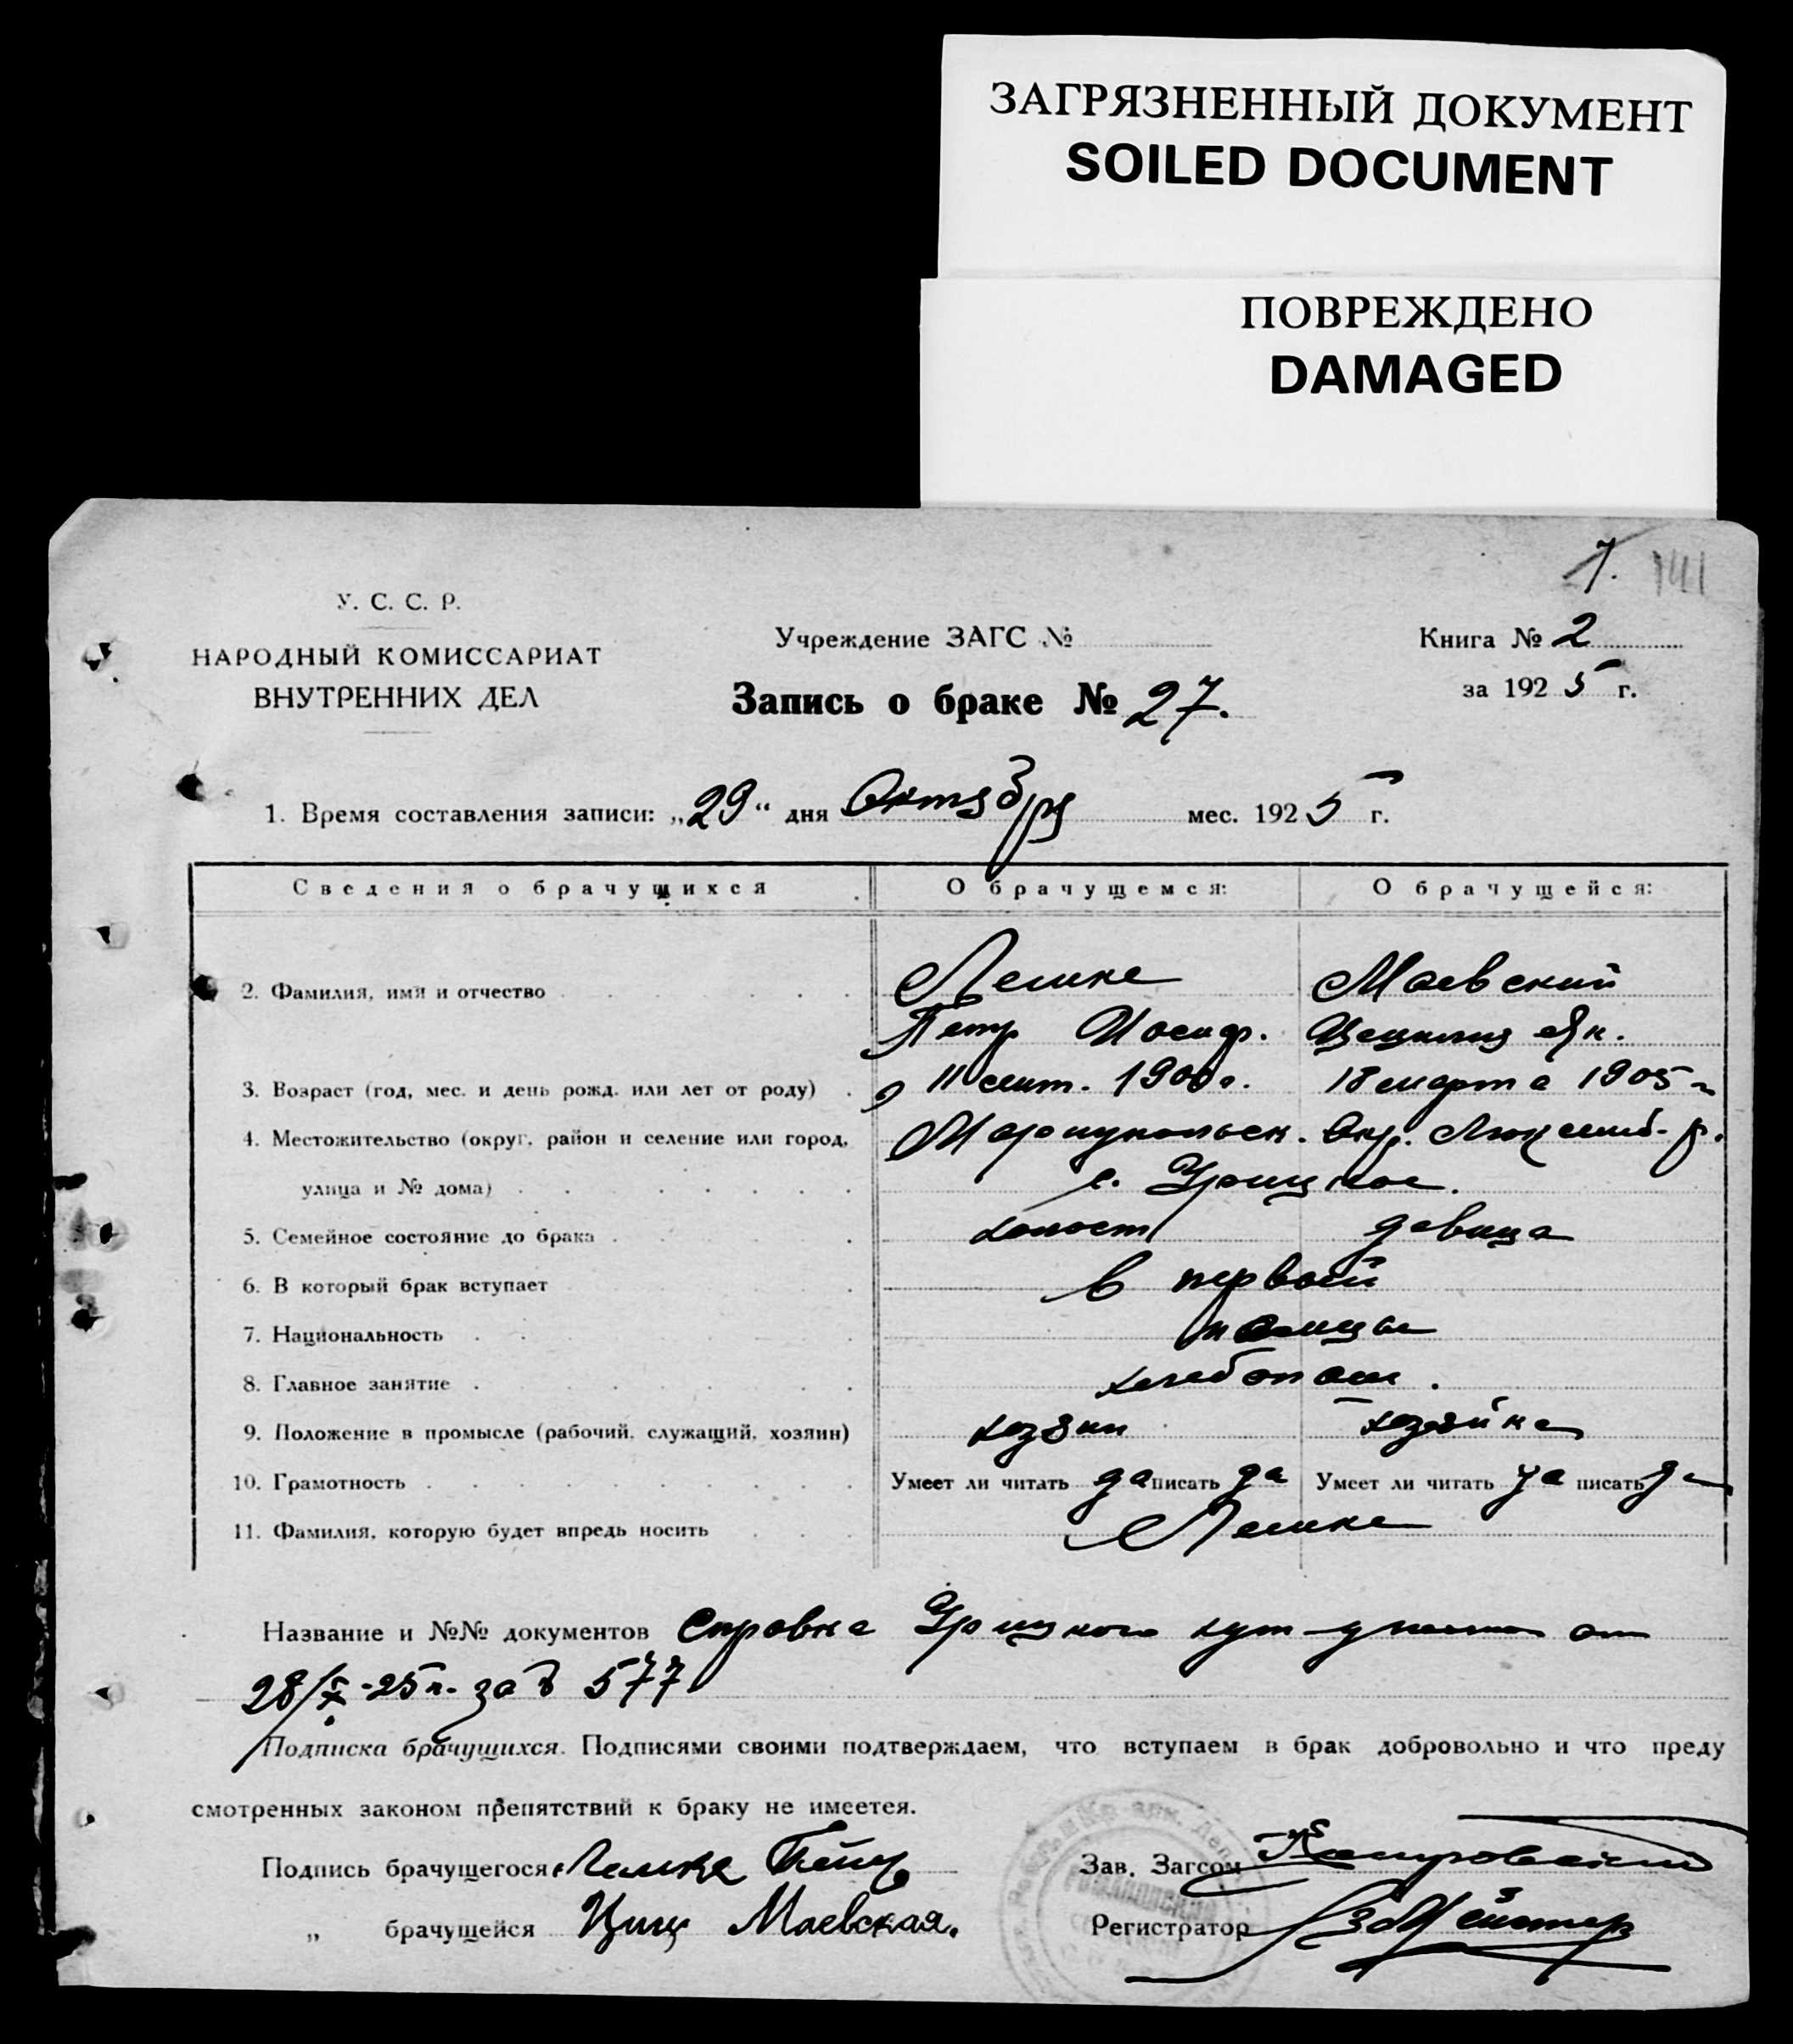 ЗАГРЯЗНЕННЫЙ ДОКУМЕНТ
SOILED DOCUMENT
ПОВРЕЖДЕНО
DAMAGED
7. 141
У. С. С. Р.
НАРОДНЫЙ КОМИССАРИАТ
ВНУТРЕННИХ ДЕЛ
Учреждение ЗАГС №
Запись о браке № 27.
Книга № 2
за 1925 г.
1. Время составления записи: „29“ дня Октября мес. 1925 г.
Сведения о брачущихся О брачущемся: О брачущейся:
2. Фамилия, имя и отчество Лемке Маевский
Петр Иосиф. Цецилия Як.
3. Возраст (год, мес. и день рожд. или лет от роду) 11 сент. 1900 г. 18 марта 1905 г
4. Местожительство (округ, район и селение или город, Мариупольск. Окр. Люксемб. р.
улица и № дома) с. Урицкое.
5. Семейное состояние до брака холост девица
6. В который брак вступает в первый
7. Национальность немцы
8. Главное занятие хлебопаш.
9. Положение в промысле (рабочий, служащий, хозяин) хозяин хозяйка
10. Грамотность Умеет ли читать да писать да Умеет ли читать да писать да
11. Фамилия, которую будет впредь носить Лемке
Название и №№ документов Справка Урицкого от
28/X-25 г. за № 577
Подписка брачущихся. Подписями своими подтверждаем, что вступаем в брак добровольно и что преду
смотренных законом препятствий к браку не имеется.
Подпись брачущегося Лемке Петр
„ брачущейся Циц Маевская.
Зав. Загсом
Регистратор